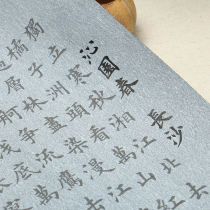 沁園春 長沙
獨立寒秋湘江北
橘子洲頭看萬山紅
層林盡染漫江
舸爭流鷹
底萬